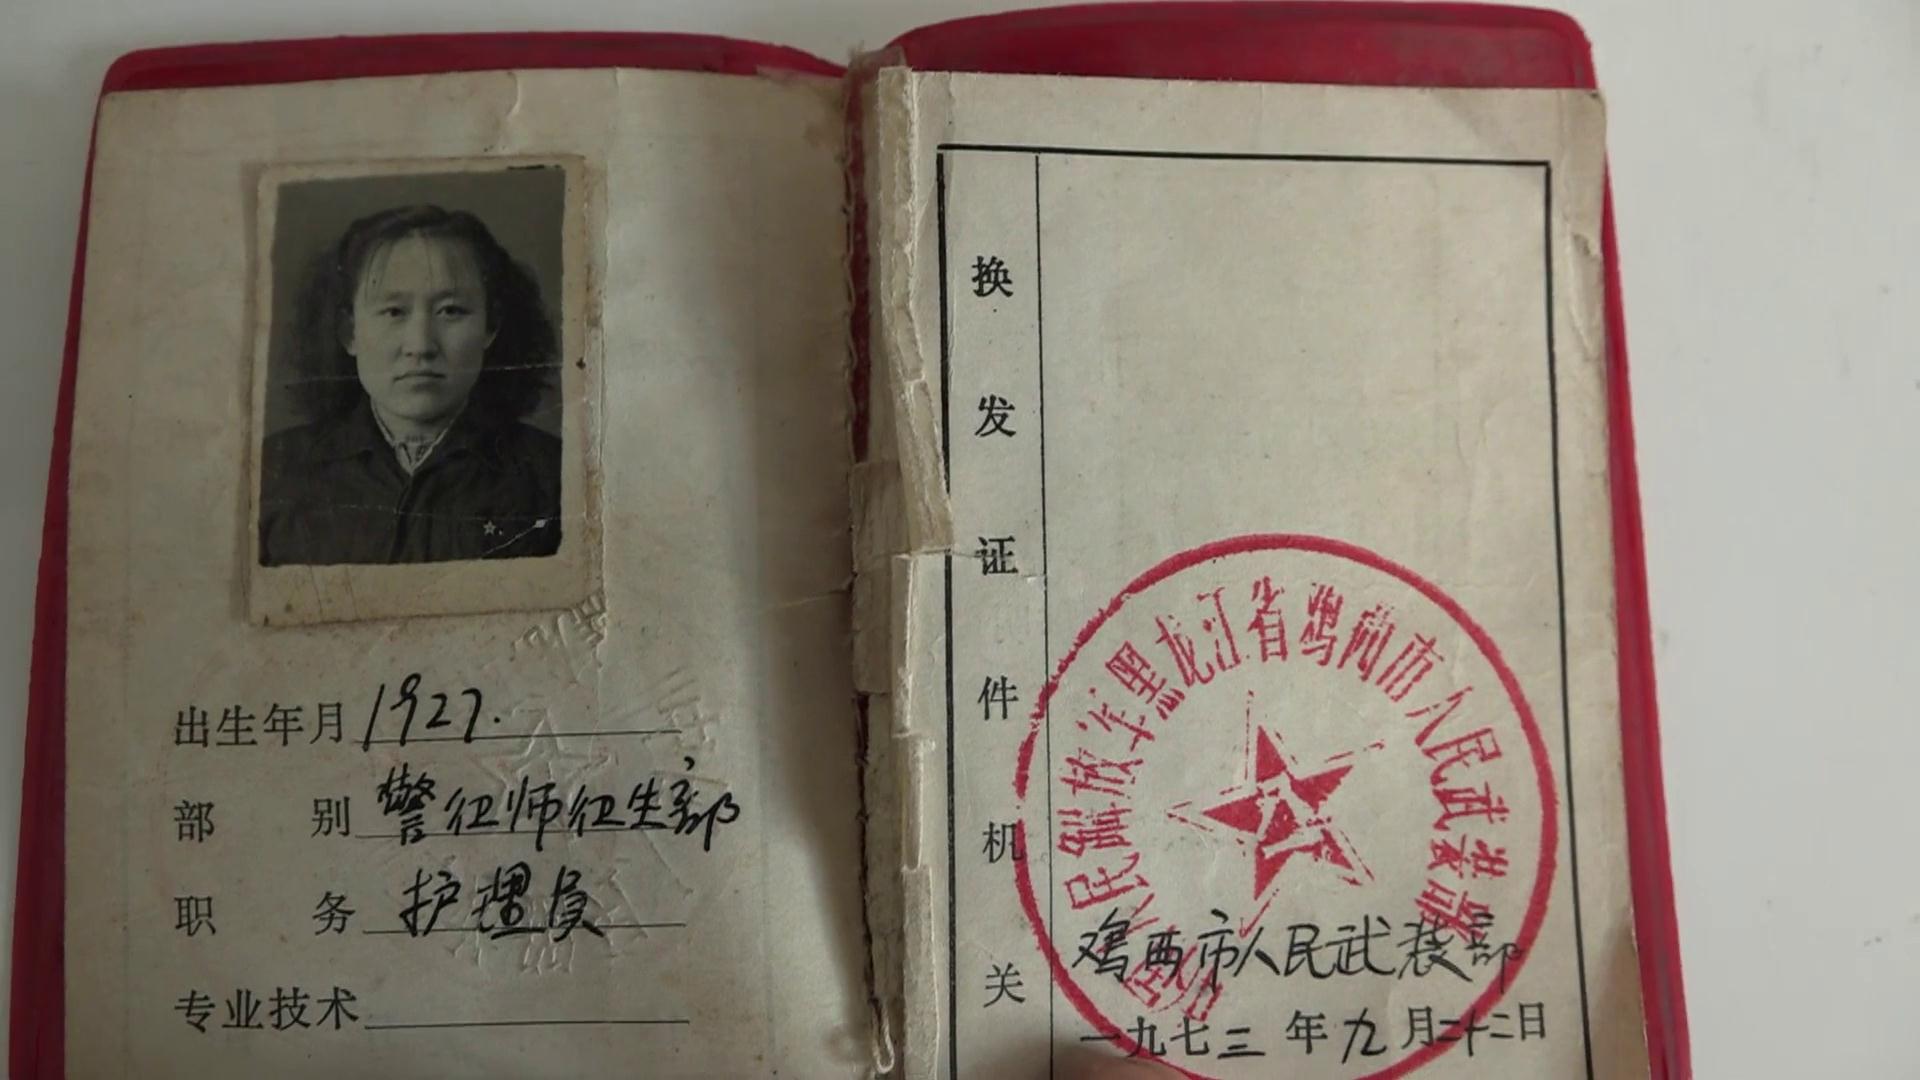 出生年月 1927.
部别 警卫师卫生部
职务 护理员
专业技术
换发证件机关
中国人民解放军黑龙江省鸡西市人民武装部
鸡西市人民武装部
一九七三年九月二十二日